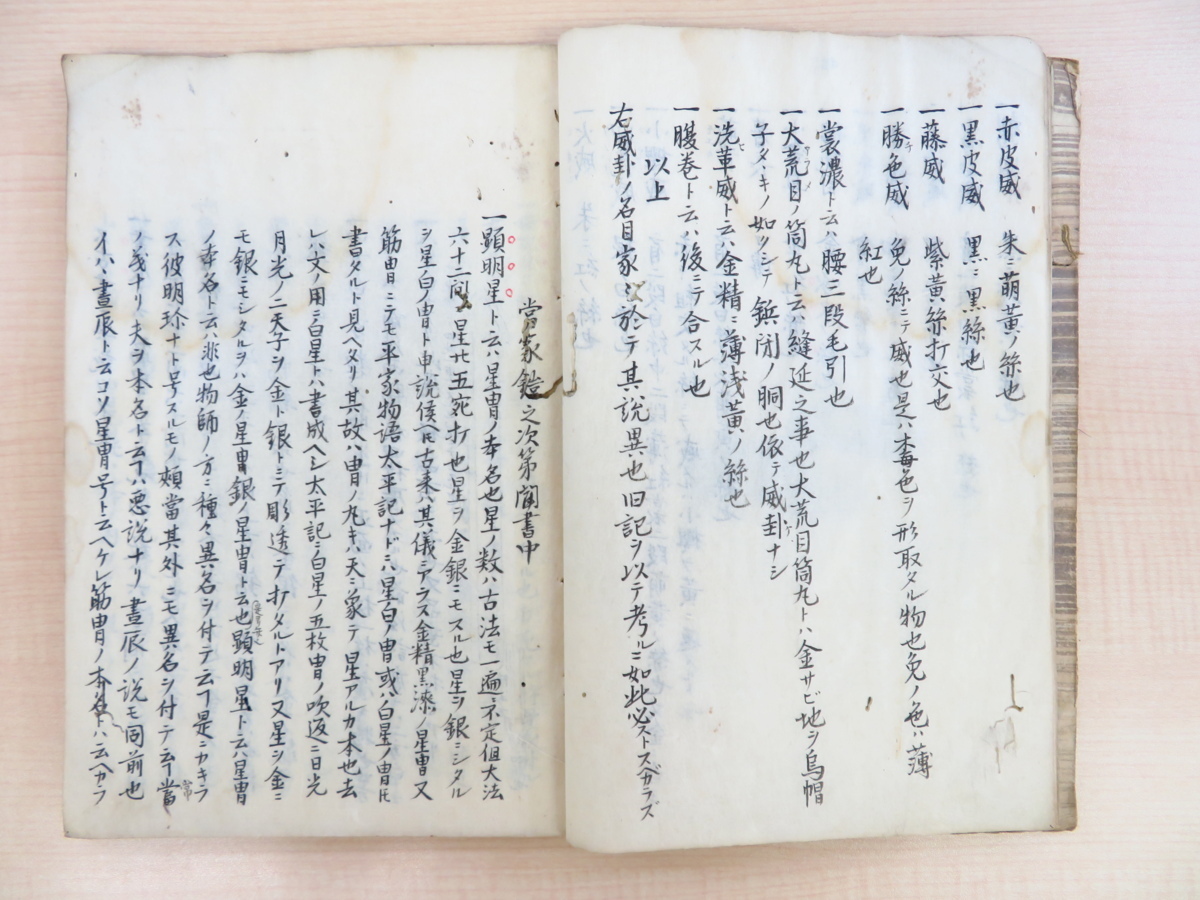 一赤皮威　朱ニ萌黄ノ絲也
一黒皮威　黒ニ黒絲也
一藤威　紫黄絲打交也
一勝色威　兔ノ絲ニテ威也是ハ本毒色ヲ形取タル物也兔ノ色ハ薄
紅也
一裳濃ト云ハ腰三段毛引也
一大荒目ノ筒丸ト云ハ縫延之事也大荒目筒丸トハ金サビ地ヲ烏帽
子タヽキノ如クシテ鋲閉ノ胴也依テ威卦ナシ
一洗革威ト云ハ金精ニ薄浅黄ノ絲也
一腹巻ト云ハ後ニテ合スル也
以上
右威卦ノ名目家々於テ其説異也旧記ヲ以テ考ルニ如此必トスベカラズ
當家鎧之次第聞書中
一顕明星ト云ハ星冑ノ本名也星ノ数ハ古法モ一遍ニ不定但大法
六十二間ノ星廿五宛打也星ヲ金銀ニモスル也星ヲ銀ニシタル
ヲ星白ノ冑ト申説侯ヘ𪜈古来ハ其儀ニテラス金精黒漆ノ星冑又
筋冑ニテモ平家物語太平記ナドニハ星白ノ冑或ハ白星ノ冑𪜈
書タルト見ヘタリ其故ハ冑ノ丸キハ天ニ象テ星アルカ本也去
レハ文ノ用ニ白星トハ書成ヘシ太平記ニ白星ノ五枚冑ノ吹返ニ日光
月光ノ二天子ヲ金ト銀トニテ彫透テ打タルトアリ又星ヲ金ニ
モ銀ニモシタルヲハ金ノ星冑銀ノ星冑ト云也顕明星ト云ハ星冑
ノ本名ト云ハ非也物師ノ方ニ種々異名ヲ付テ云ヿ是ニカキラ
ス彼明珍ナト号スルモノ頬當其外ニモ異名ヲ付テ云ヿ當
ノ義ナリ夫ヲ本名ト云ヿハ悪説ナリ晝辰ノ説モ同前也
イハヽ晝辰ト云コソ星冑号ト云ヘケレ筋冑ノ本名トハ云ヘカラ